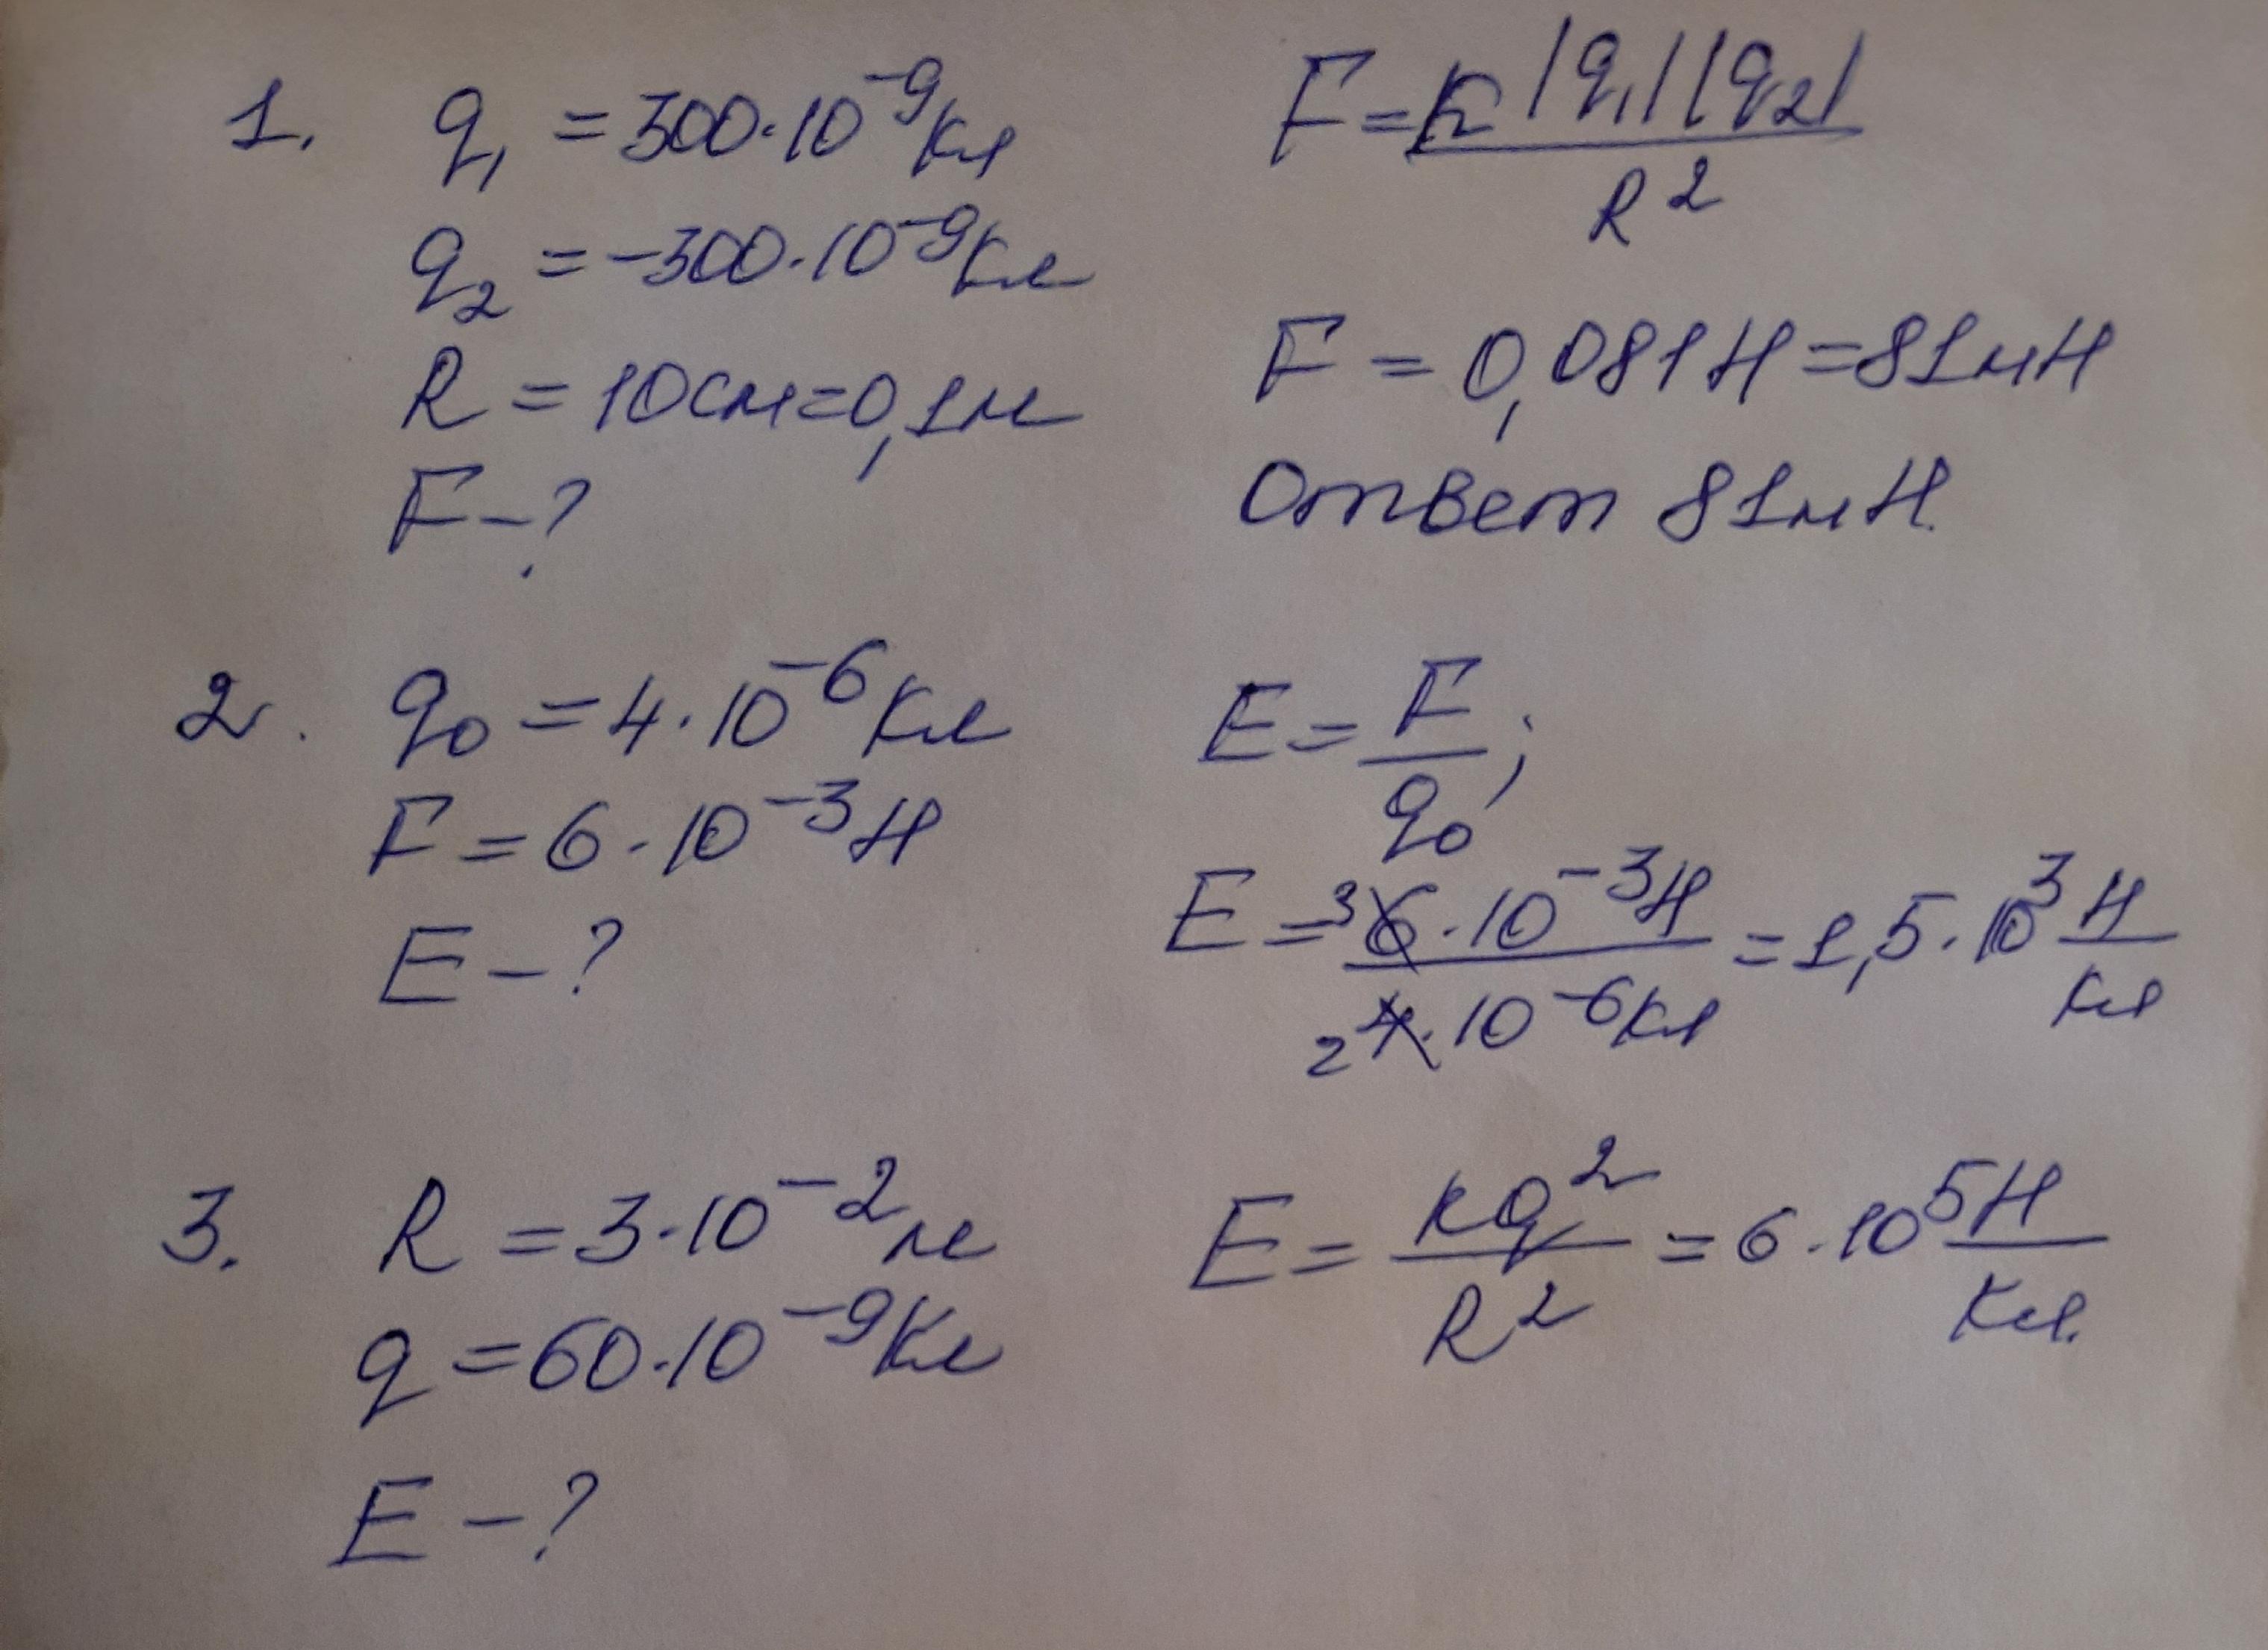 1. q₁ = 300·10⁻⁹Кл
q₂ = -300·10⁻⁹Кл
R = 10см=0,1м
F-?
F = к|q₁||q₂|/R²
F = 0,081Н=81мН
Ответ 81мН.
2. q₀ = 4·10⁻⁶Кл
F = 6·10⁻³Н
E-?
E = F/q₀;
E = ³6·10⁻³Н/₂4·10⁻⁶Кл = 1,5·10³ Н/Кл
3. R = 3·10⁻²м
q = 60·10⁻⁹Кл
E-?
E = кq²/R² = 6·10⁵ Н/Кл.